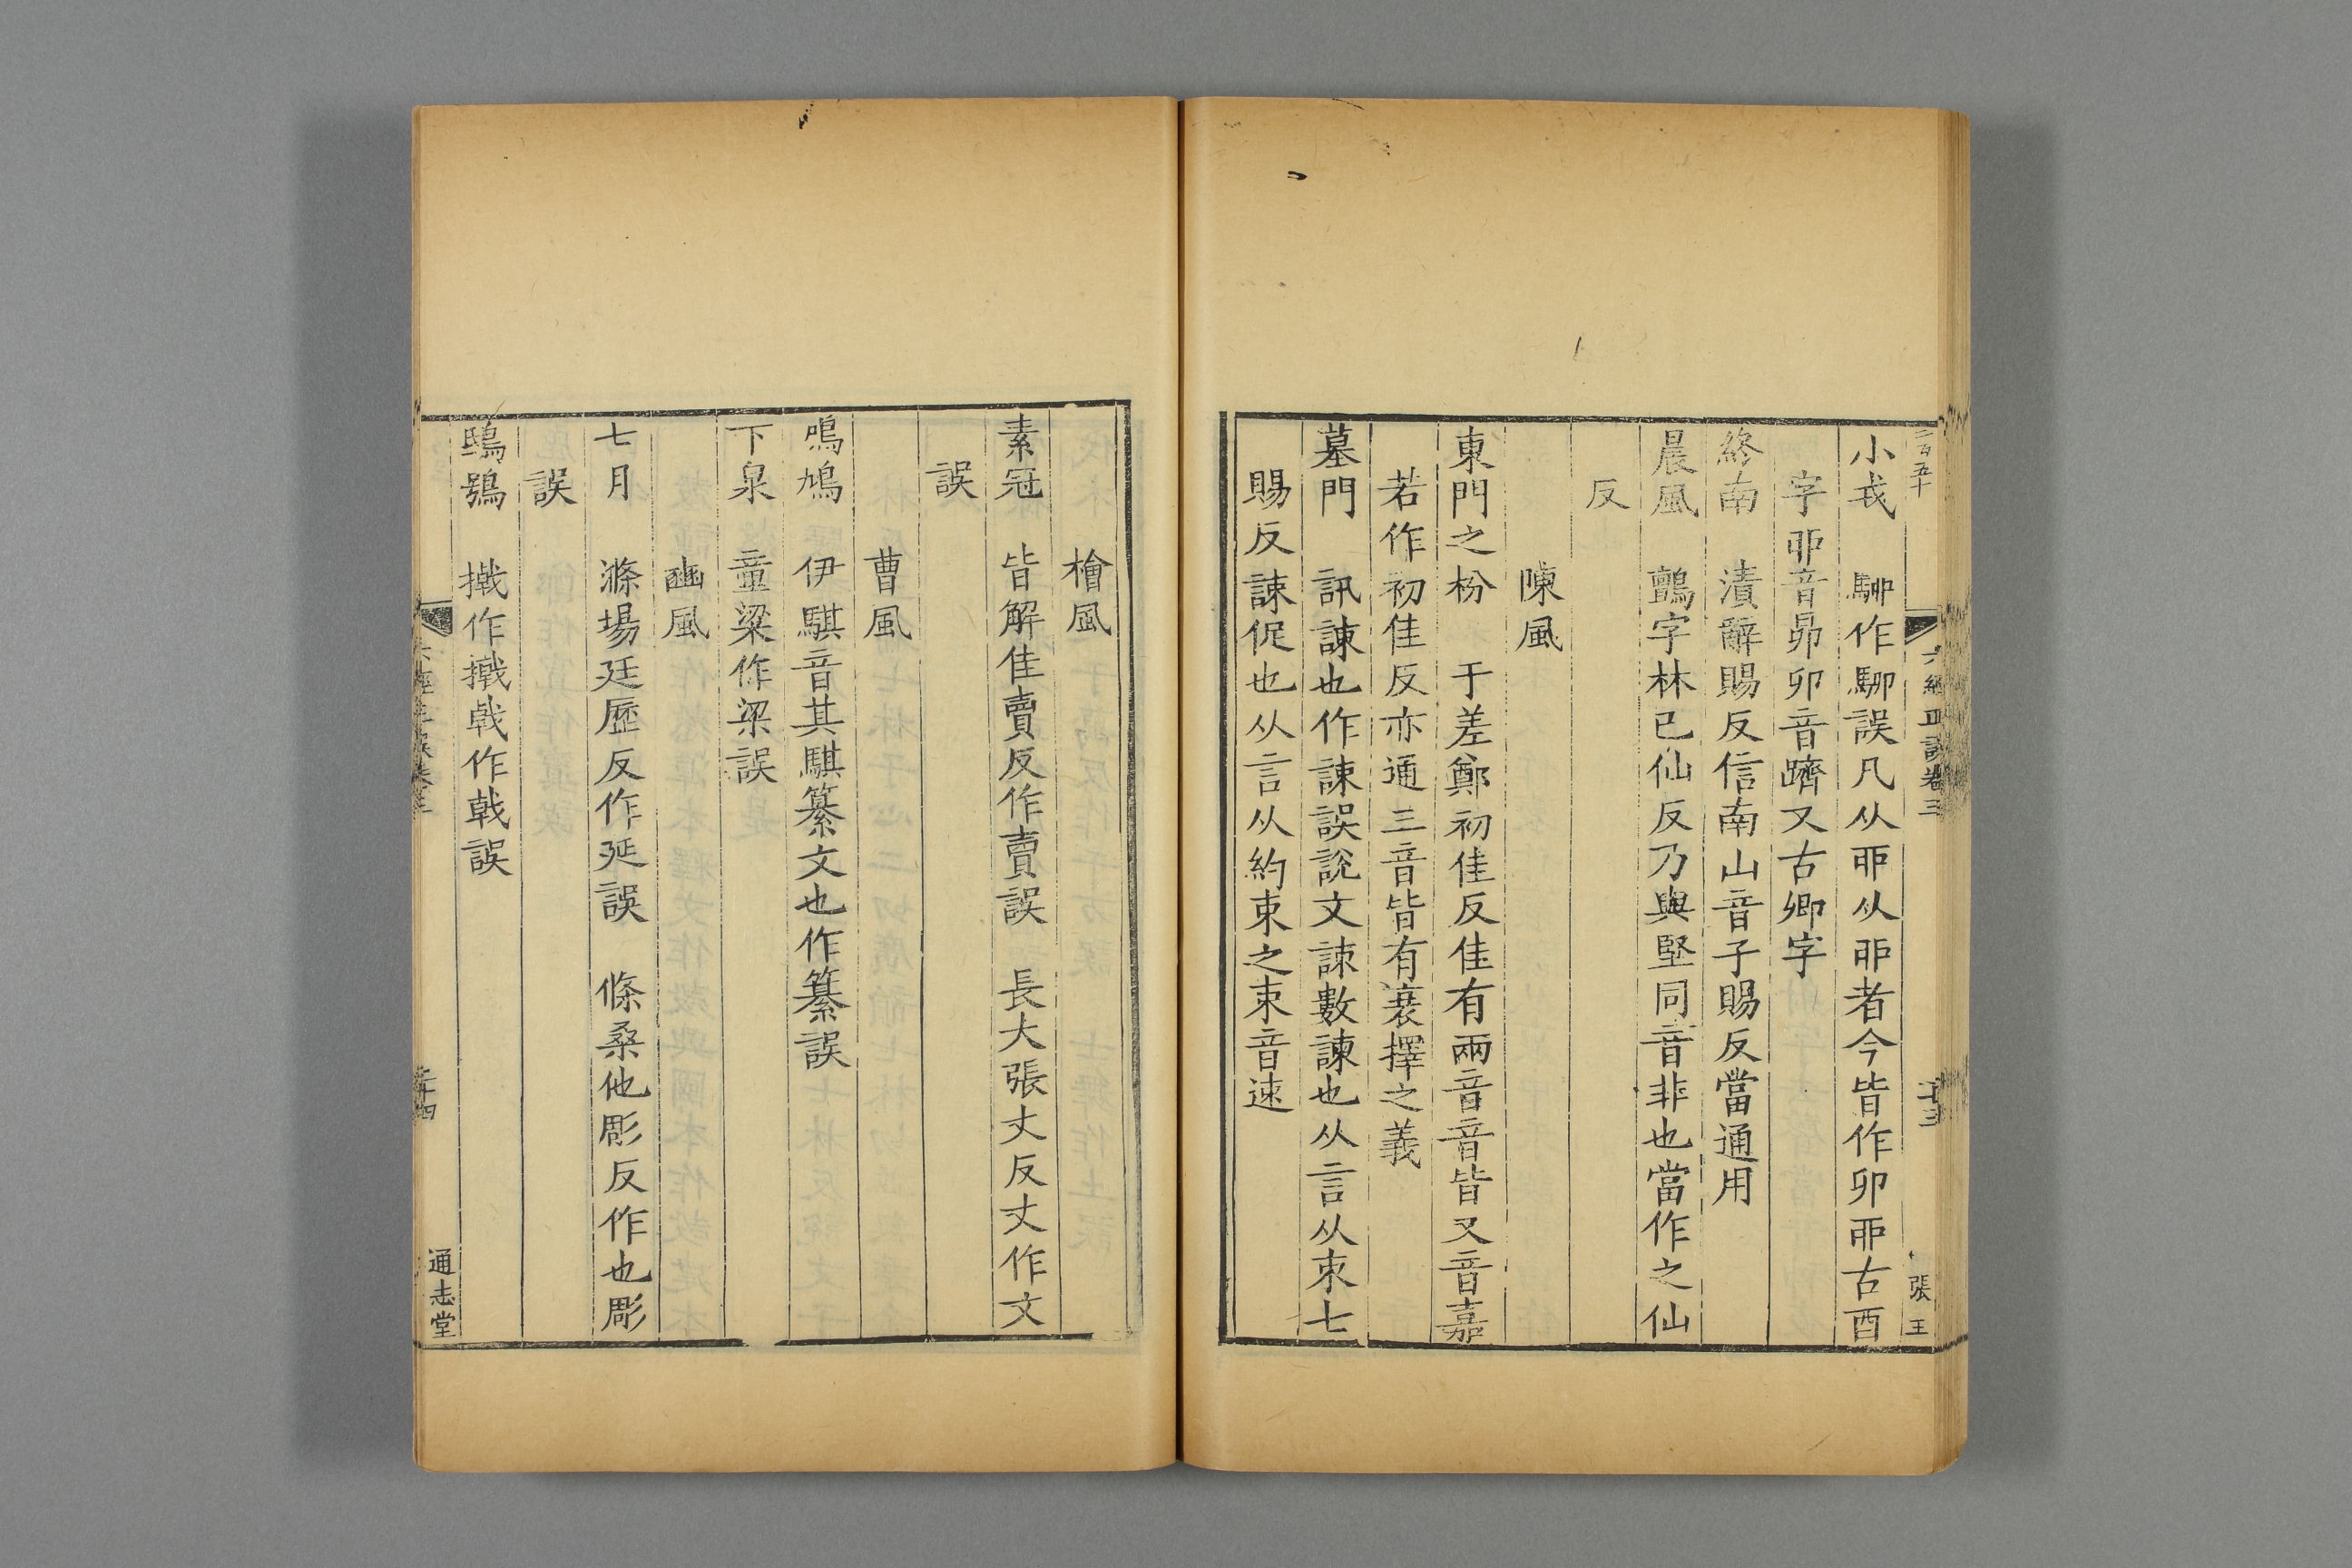 二百五十
六經正誤卷三
二十三
張王
小戎 駵作駠誤凡从丣从丣者今皆作卯丣古酉
字戼音昴卯音躋又古卿字
終南 漬辭賜反信南山音子賜反當通用
晨風 鸇字林已仙反乃與堅同音非也當作之仙
反
陳風
東門之枌 于差鄭初佳反佳有兩音音皆又音嘉
若作初佳反亦通三音皆有衰擇之義
墓門 訊諫也作諌誤說文諌數諫也从言从朿七
賜反諫促也从言从約束之束音速
檜風
素冠 皆解佳賣反作賣誤 長大張丈反丈作文
誤
曹風
鳲鳩 伊騏音其騏綦文也作纂誤
下泉 童粱作梁誤
豳風
七月 滌場廷歷反作延誤 條桑他彫反作也彫
誤
鴟鴞 撠作撠戟作戟誤
六經正誤卷三
二十四
通志堂